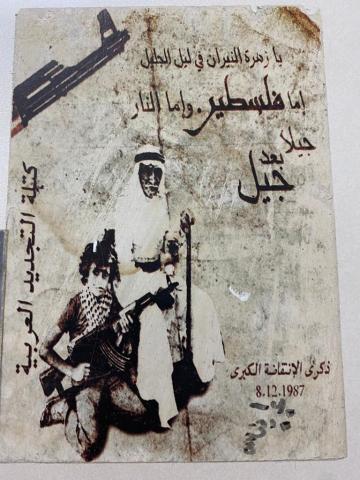 يا زهرة النيران في ليل الجليل
إما فلسطين وإما النار
جيلاً
بعد
جيل
كتلة التجديد العربية
ذكرى الإنتفاضة الكبرى
8.12.1987